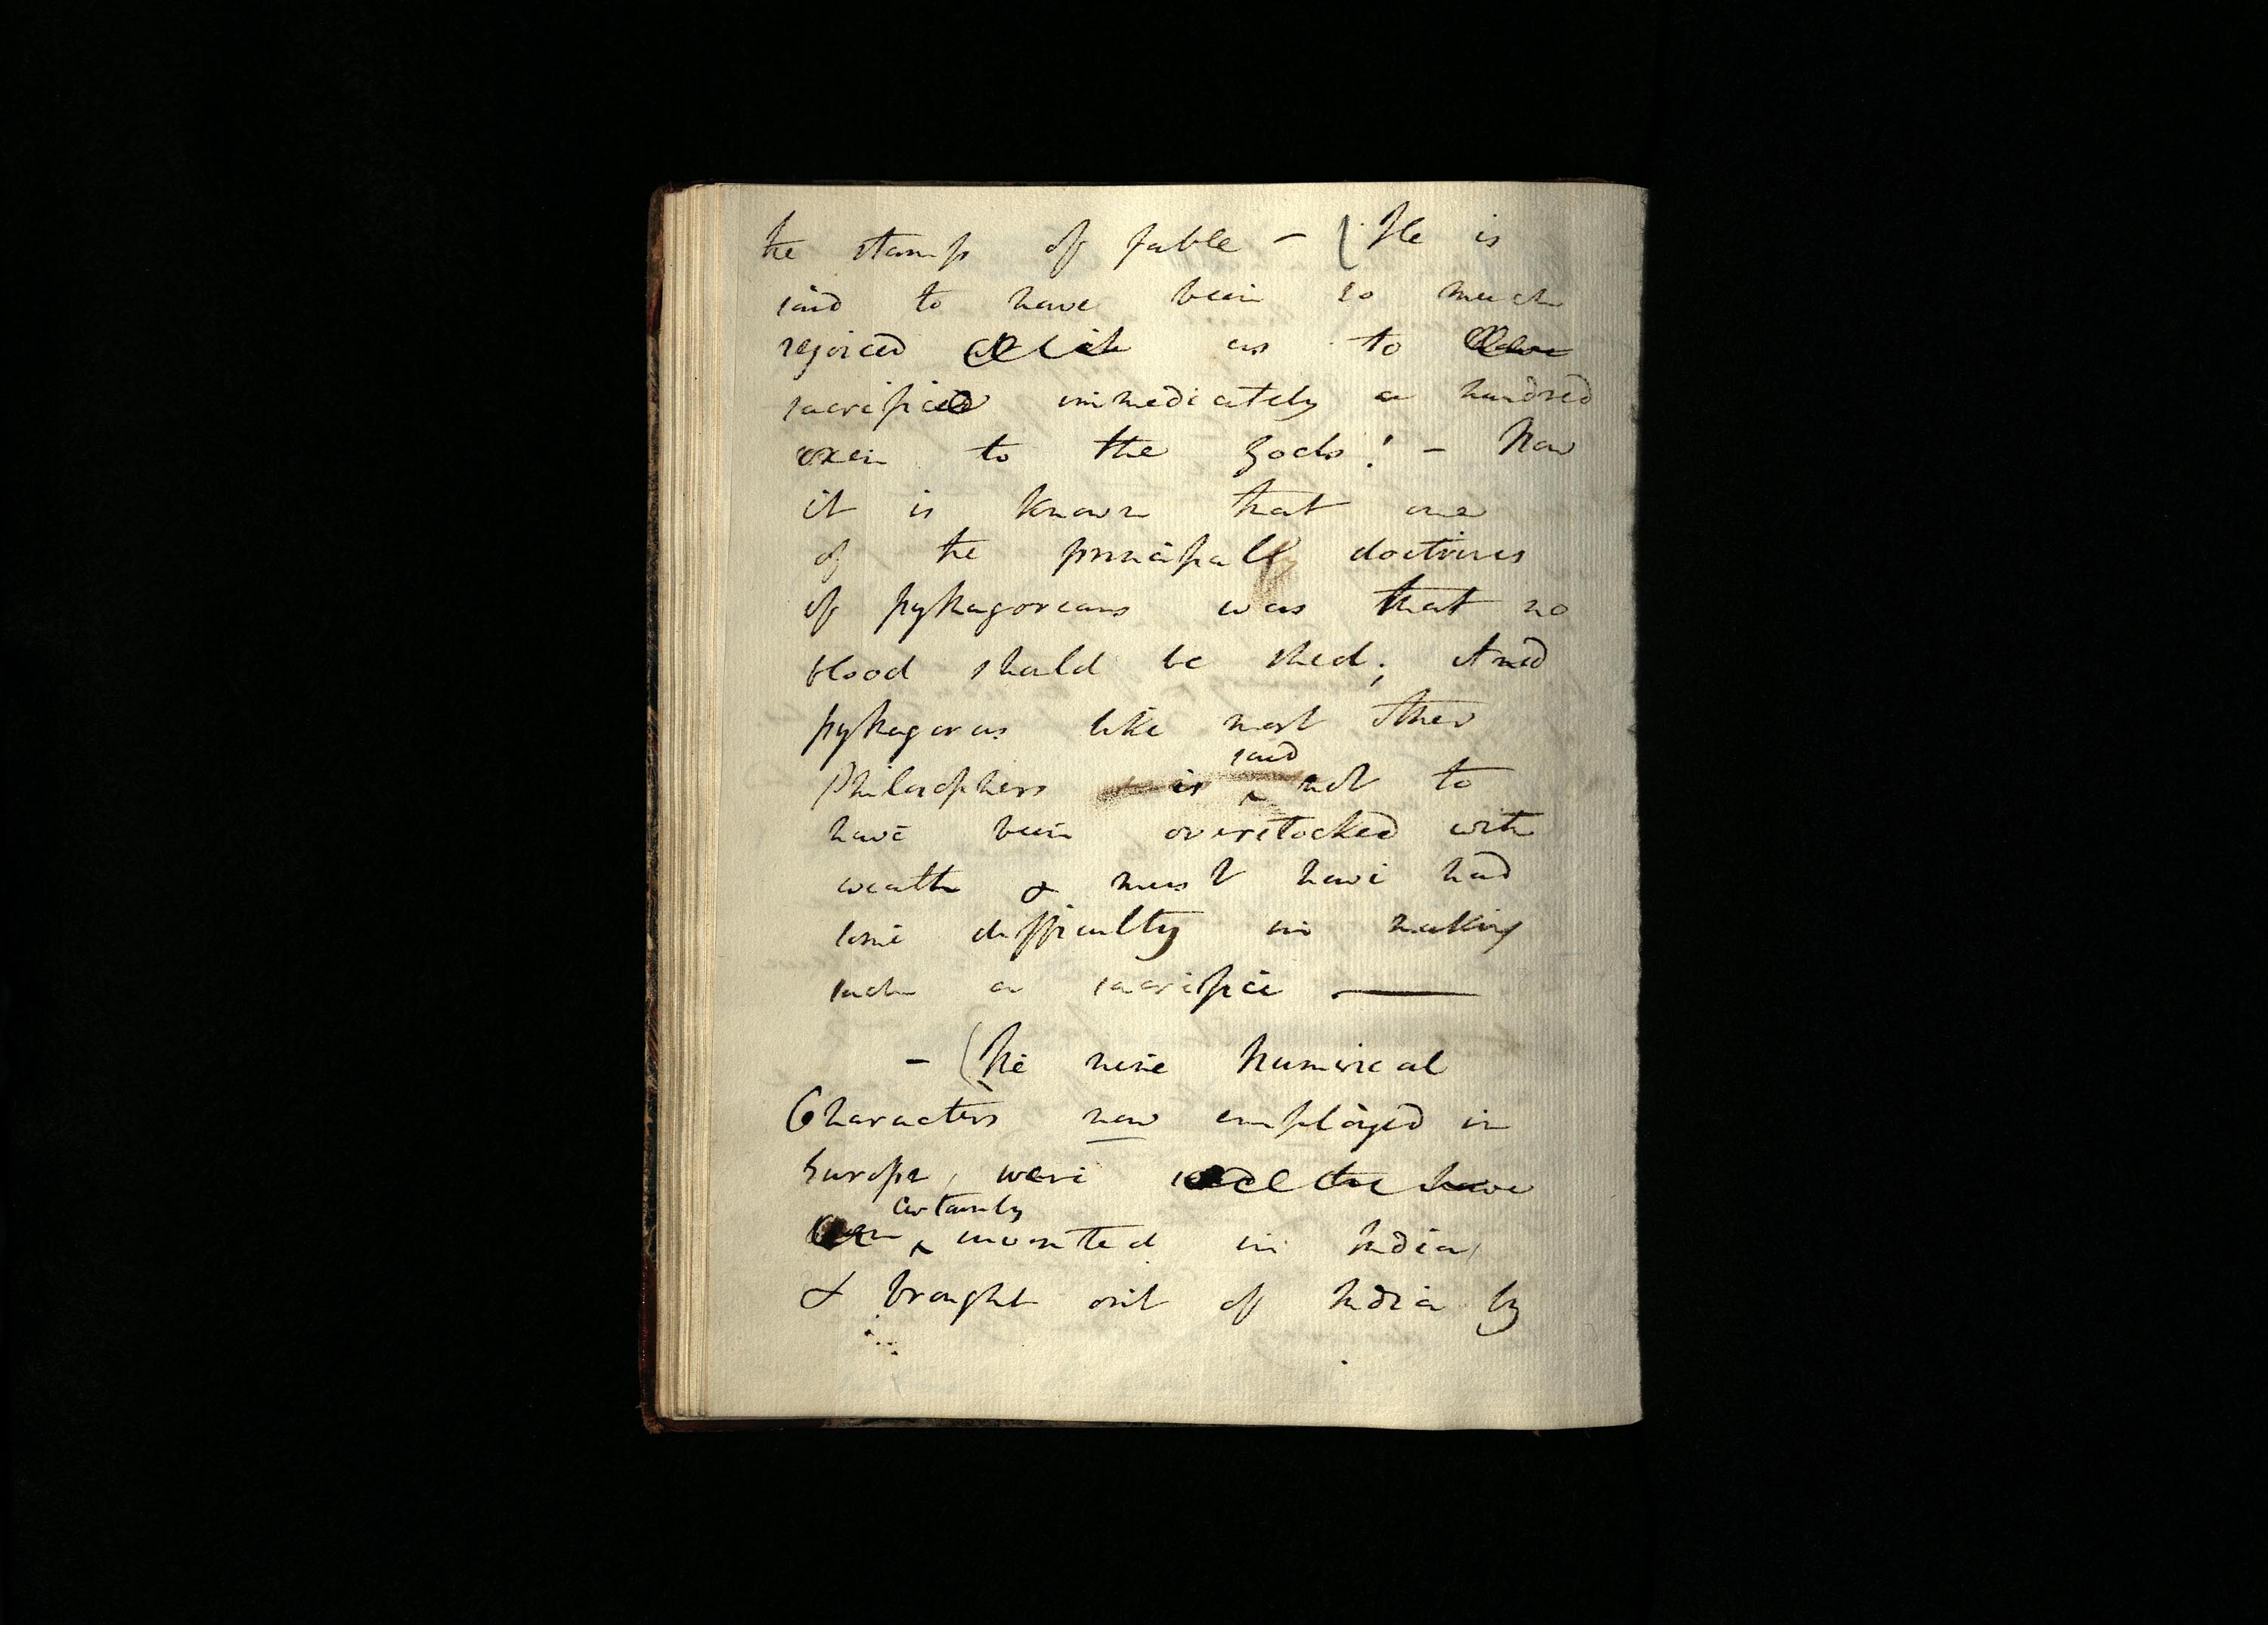 the stamp of fable – (He is
said to have been so much
rejoiced as to have
sacrificed immediately a hundred
oxen to the gods! – Now
it is known that one
of the principal doctrines
of pythagoreans was that no
blood should be shed; And
pythagoras like most other
Philosophers is said not to
have been overstocked with
wealth & must have had
some difficulty in making
such a sacrifice ——
– (The nine Numerical
Characters now employed in
Europe, were have
been certainly invented in India,
& brought out of India by